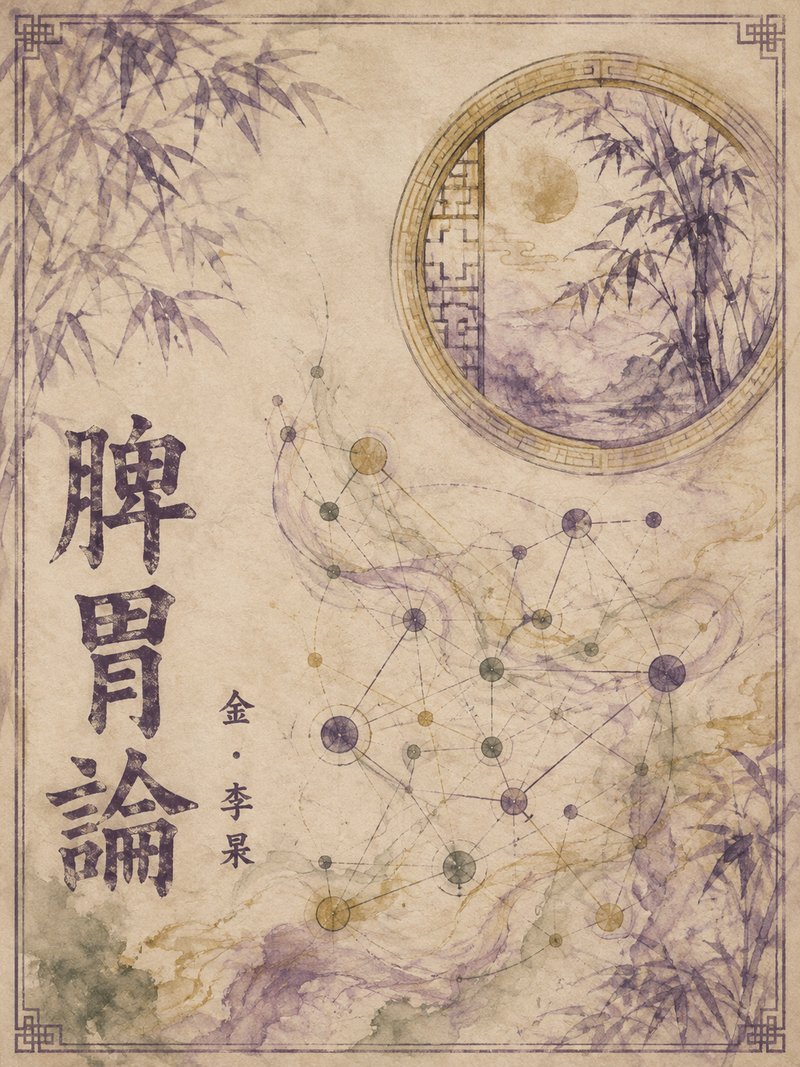 脾胃論
金·李杲